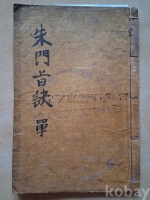 朱門旨訣 單
kobay